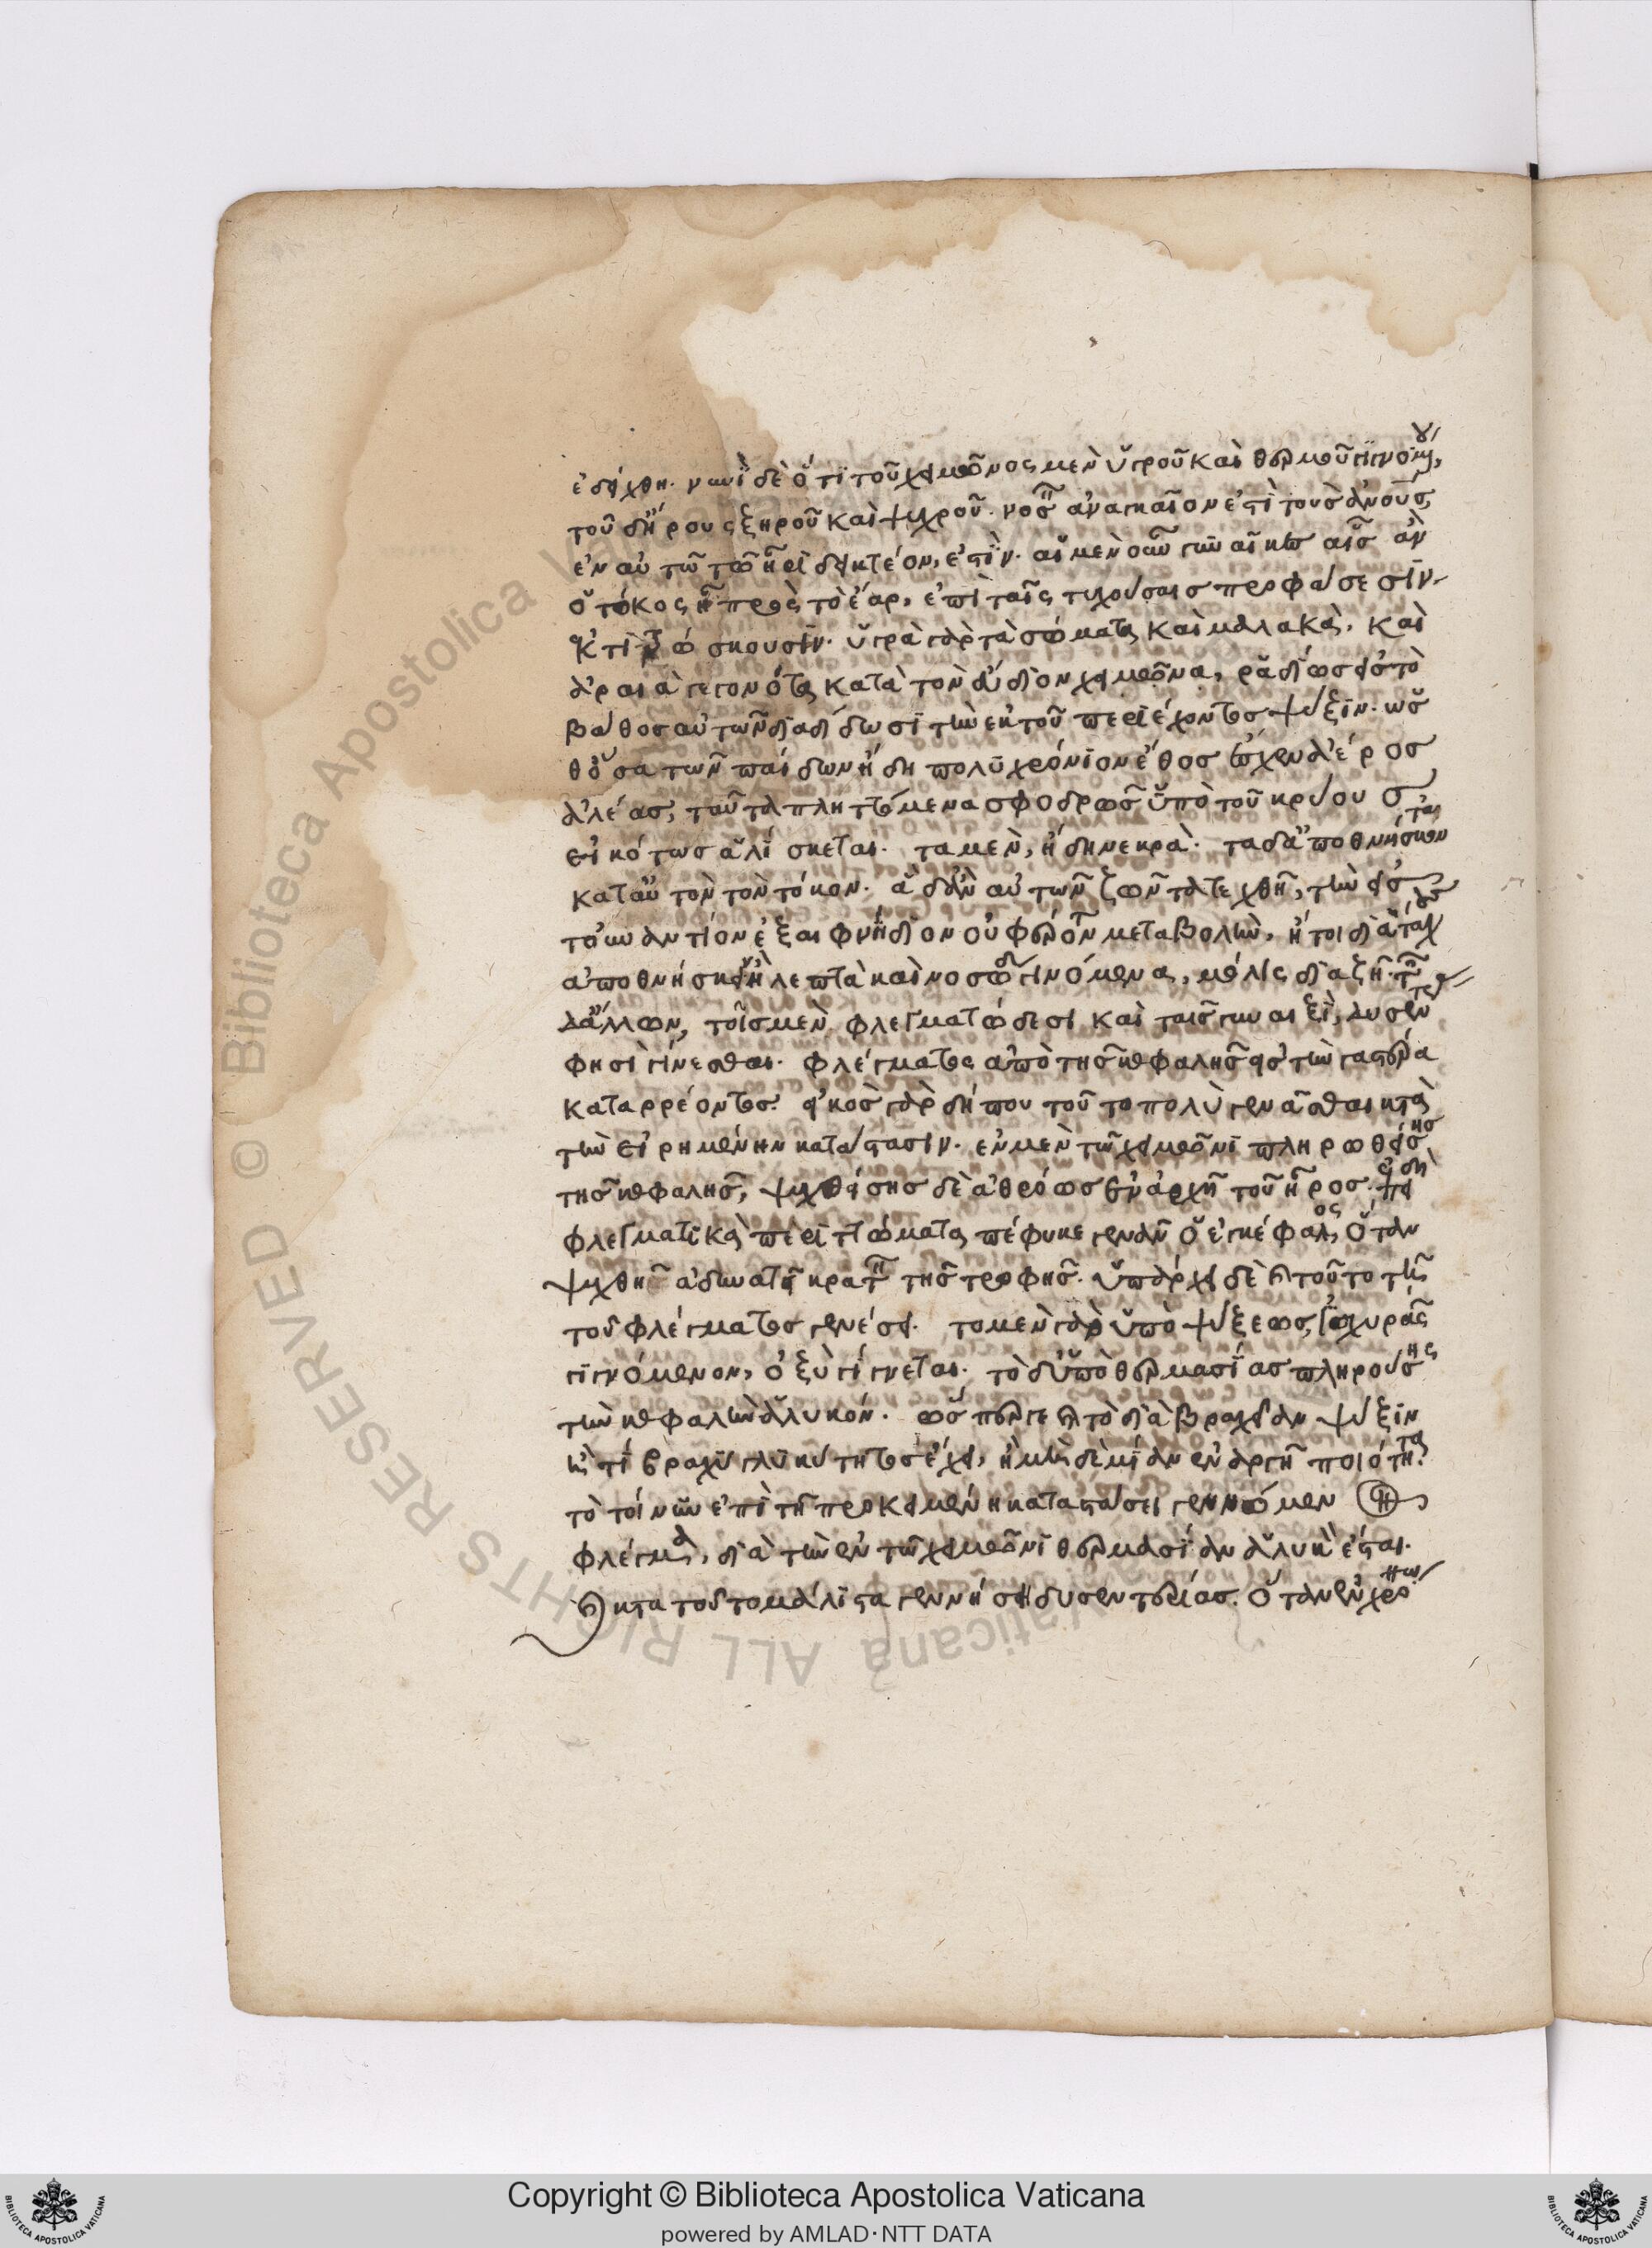 ἐδείχθη. νυνὶ δὲ ὅτι τοῦ χειμῶνος μὲν ὑγροῦ καὶ θερμοῦ γιγνομένου,
τοῦ δ' ἦρος ξηροῦ καὶ ψυχροῦ. νοσεῖν ἀναγκαῖόν ἐστι τοὺς ἀνους,
ἐν αὐτῷ τῷ ἦρι δεικτέον ἐστὶν. αἱ μὲν οὖν γυναῖκες αἷς ἂν
ὁ τόκος ᾖ πρὸς τὸ ἔαρ, ἐπὶ ταῖς τυχούσαις προφάσεσιν
ἐκτιτρώσκουσιν. ὑγρὰ γὰρ τὰ σώματα καὶ μαλακὰ. καὶ
ἀραιὰ γεγονότα κατὰ τὸν εὔδιον χειμῶνα, ῥᾳδίως εἰς τὸ
βάθος αὐτῶν διαδίδωσι τὴν ἐκ τοῦ περιέχοντος ψύξιν. ὥς
θ' ὅσα τῶν παίδων ἤδη πολυχρόνιον ἔθος ἔσχεν ἀέρος
ἀλέας, ταῦτα πληττόμενα σφοδρῶς ὑπὸ τοῦ κρύου σ
εἰκότως ἁλίσκεται. τὰ μὲν, ἤδη νεκρὰ. τὰ δ' ἀποθνήσκοντα
κατ' αὐτὸν τὸν τόκον. ἃ δ' ἂν αὐτῶν ζῶντα τεχθῇ, τὴν εἰς
τοὐναντίον ἐξαιφνίδιον οὐ φέροντα μεταβολὴν, ἤτοι διὰ τάχους
ἀποθνήσκει ἢ λεπτὰ καὶ νοσώδη γινόμενα, μόλις διαζῇ. τῶν
δ' ἄλλων, τοῖς μὲν φλεγματώδεσι καὶ ταῖς γυναιξὶ, δυσεντερίας
φησὶ γίνεσθαι. φλέγματος ἀπὸ τῆς κεφαλῆς εἰς τὴν γαστέρα
καταρρέοντος. εἰκὸς γὰρ δήπου τοῦτο πολὺ γεννᾶσθαι κατὰ
τὴν εἰρημένην κατάστασιν. ἐν μὲν τῷ χειμῶνι πληρωθείσης
τῆς κεφαλῆς, ψυχθείσης δὲ ἀθρόως ἐν ἀρχῇ τοῦ ἦρος. ἐπειδὴ
φλεγματικὰ περιττώματα πέφυκε γεννᾶν ὁ ἐγκέφαλος, ὅταν
ψυχθεὶς ἀδυνατῇ κρατεῖν τῆς τροφῆς. ὑπάρχει δὲ καὶ τοῦτο τῇ
τοῦ φλέγματος γενέσει. τὸ μὲν γὰρ ὑπὸ ψύξεως ἰσχυρᾶς
γιγνόμενον, ὀξὺ γίγνεται. τὸ δ' ὑπὸ θερμασίας πληρούσης
τὴν κεφαλὴν ἁλυκόν. ὥσπερ γε καὶ τὸ διὰ βραχεῖαν ψύξιν
ἤτι βραχὺ γλυκύτητος ἔχει, ἢ μὴ δὲ μίαν ἐναργῆ ποιότητα.
τὸ τοίνυν ἐπὶ τῇ προκειμένῃ καταστάσει γεννώμενον
φλέγμα, διὰ τὴν ἐν τῷ χειμῶνι θερμασίαν ἁλυκὸν ἔσται.
καὶ κατὰ τοῦτο μάλιστα γεννήσει δυσεντερίας. ὅταν ἐγχρο